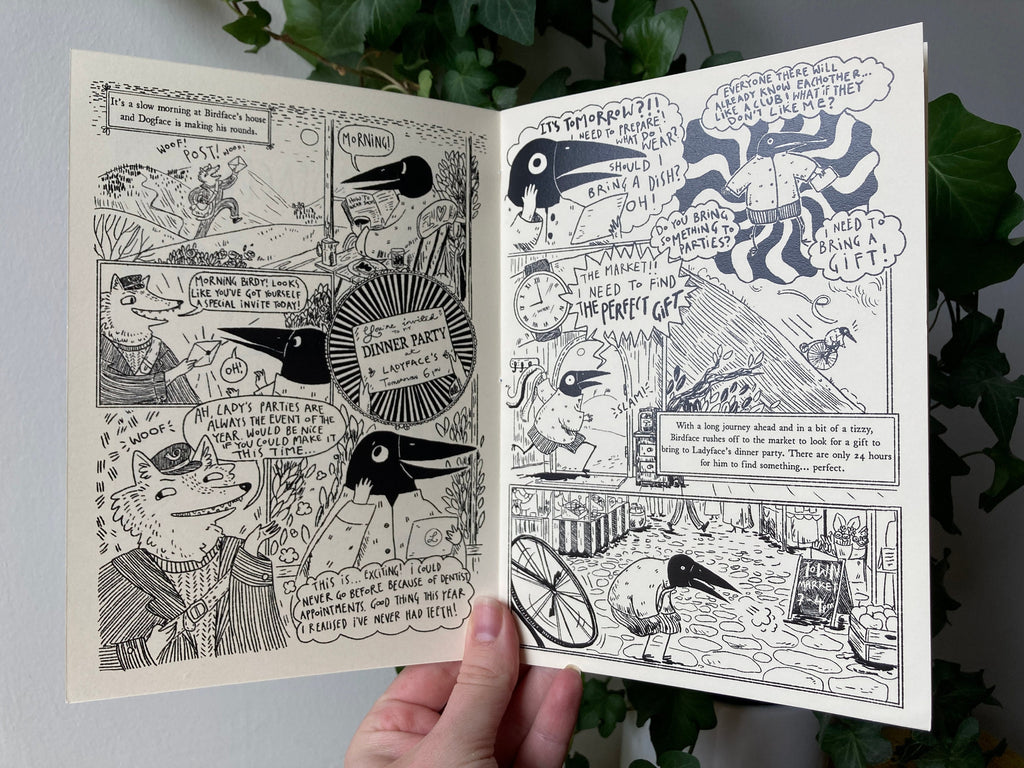 It's a slow morning at Birdface's house
and Dogface is making his rounds.
WOOF!
POST!
WOOF!
MORNING!
HOW TO
MORNING BIRDY! LOOKS
LIKE YOU'VE GOT YOURSELF
A SPECIAL INVITE TODAY!
OH!
You're invited
TO MY
DINNER PARTY
at
LADYFACE'S
Tomorrow 6pm
WOOF
AH, LADY'S PARTIES ARE
ALWAYS THE EVENT OF THE
YEAR. WOULD BE NICE
IF YOU COULD MAKE IT
THIS TIME...
THIS IS... EXCITING! I COULD
NEVER GO BEFORE BECAUSE OF DENTIST
APPOINTMENTS. GOOD THING THIS YEAR
I REALISED I'VE NEVER HAD TEETH!
IT'S TOMORROW?!!
I NEED TO PREPARE!
WHAT DO I
WEAR?
SHOULD I
BRING A DISH?
OH!
EVERYONE THERE WILL
ALREADY KNOW EACHOTHER...
LIKE A CLUB! WHAT IF THEY
DON'T LIKE ME?
DO YOU BRING
SOMETHING TO
PARTIES?
I NEED TO
BRING A
GIFT!
THE MARKET!!
I NEED TO FIND
THE PERFECT GIFT
SLAM!
With a long journey ahead and in a bit of a tizzy,
Birdface rushes off to the market to look for a gift to
bring to Ladyface's dinner party. There are only 24 hours
for him to find something... perfect.
TOWN
MARKET